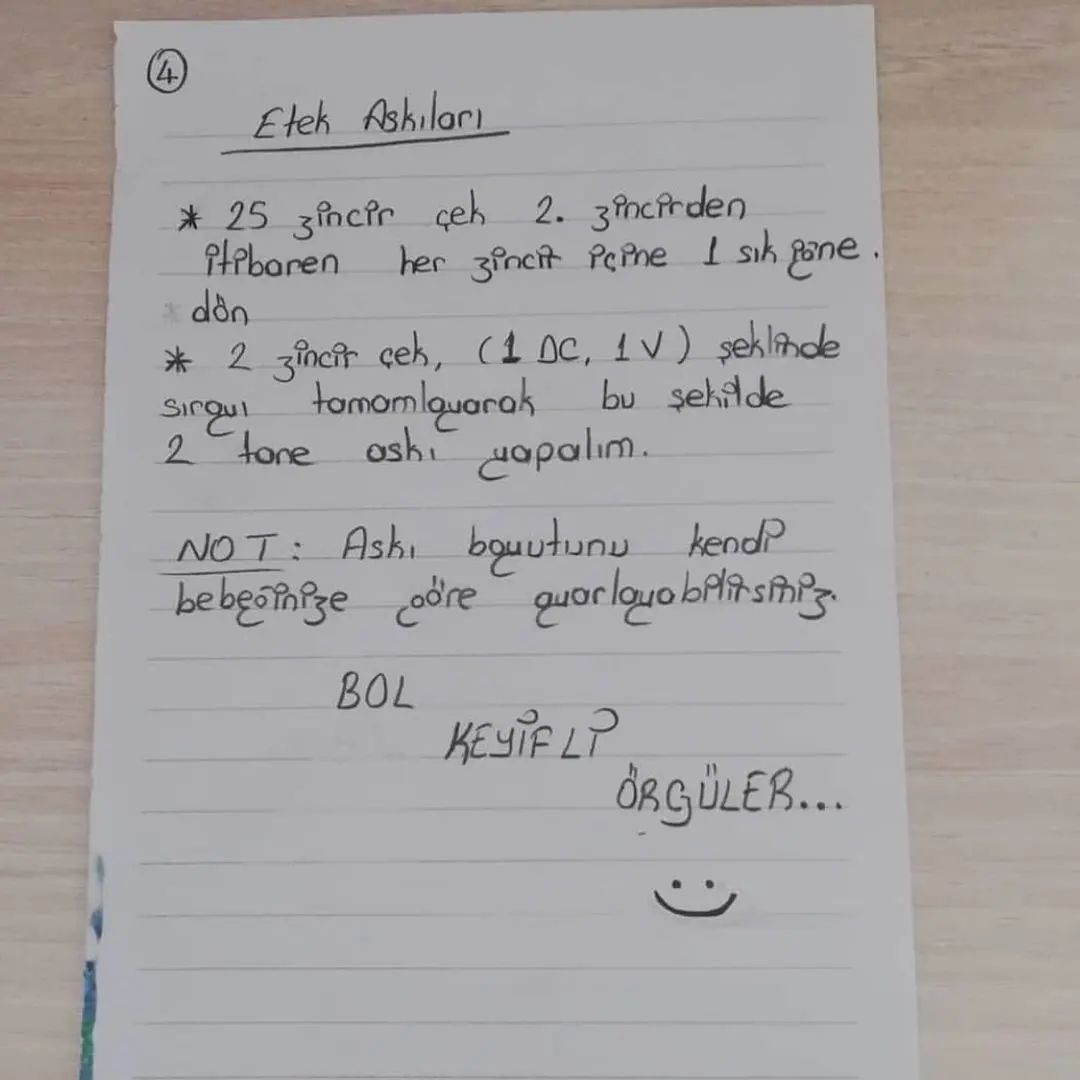 4
Etek Askıları
* 25 zincir çek 2. zincirden
itibaren her zincir içine 1 sık iğne.
dön
* 2 zincir çek, (1 DC, 1 V) şeklinde
sırayı tamamlayarak bu şekilde
2 tane askı yapalım.
NOT: Askı boyutunu kendi
bebeğinize göre ayarlayabilirsiniz.
BOL
KEYİFLİ
ÖRGÜLER...